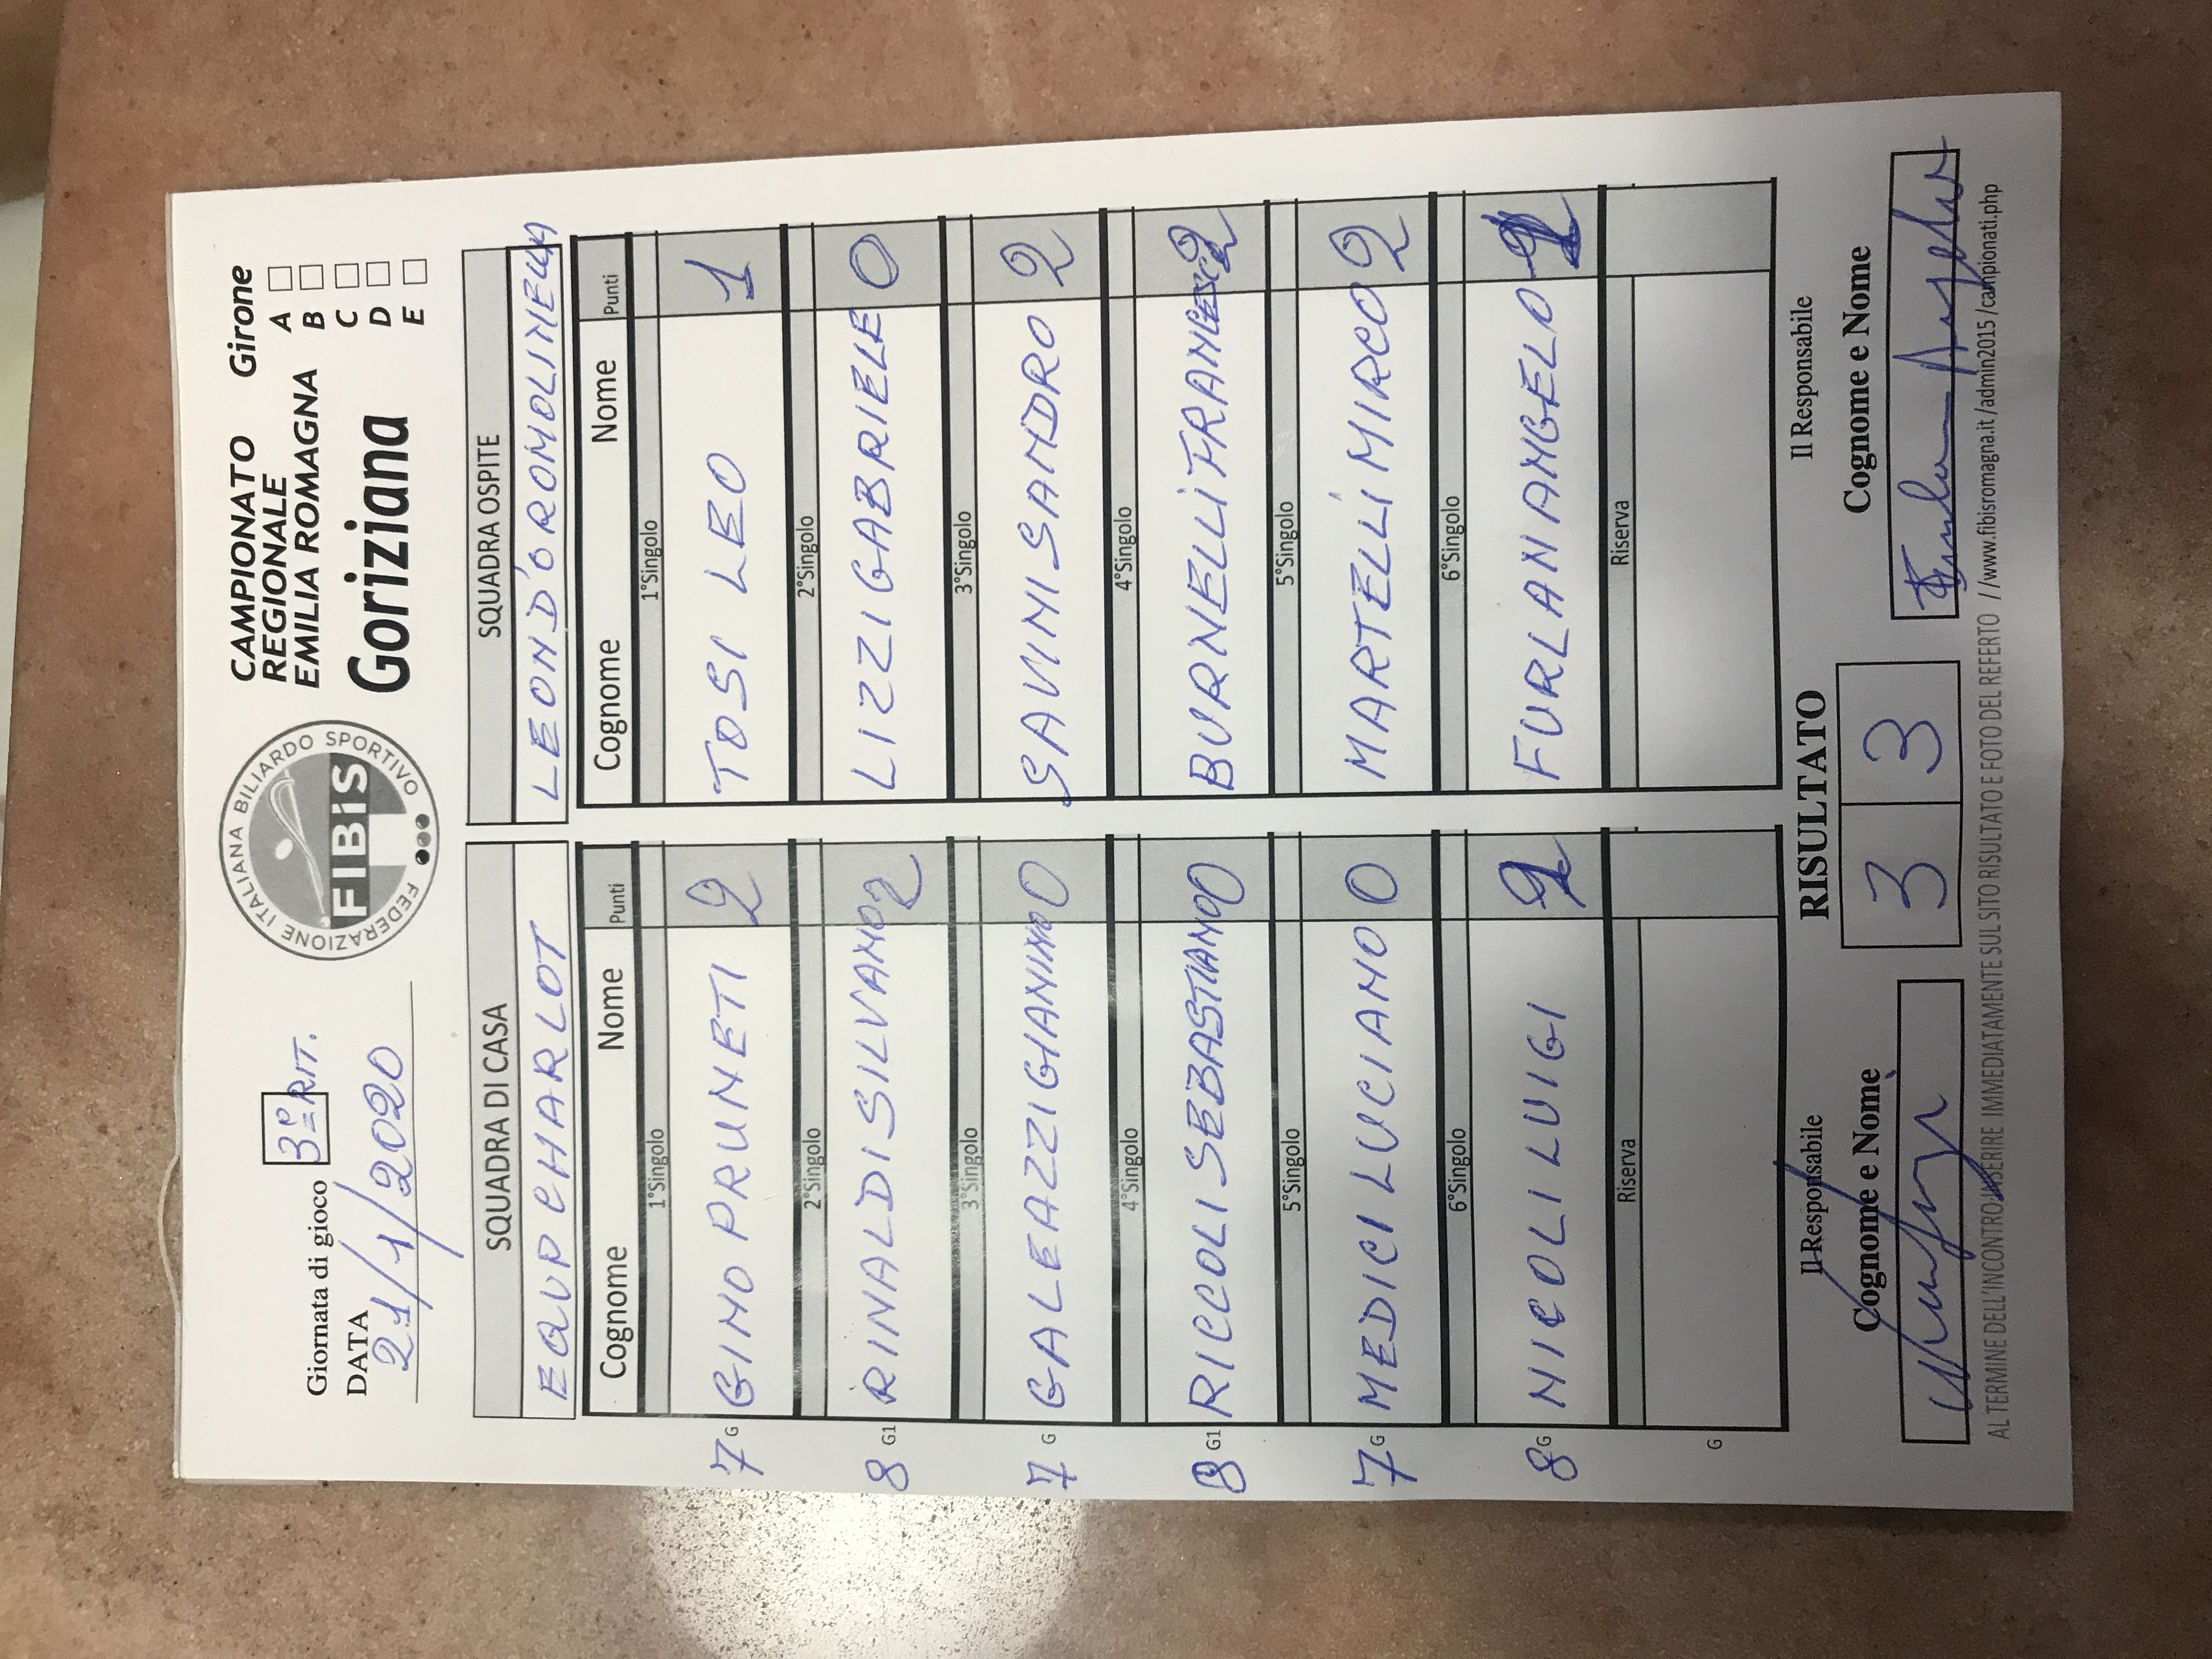 Giornata di gioco 3° RIT.
DATA 21/1/2020
FEDERAZIONE ITALIANA BILIARDO SPORTIVO
FIBiS
CAMPIONATO Girone
REGIONALE
EMILIA ROMAGNA
Goriziana
A
B
C
D
E
SQUADRA DI CASA SQUADRA OSPITE
EQUP CHARLOT LEON D'ORO MOLINELLA
Cognome Nome Punti Cognome Nome Punti
1°Singolo 1°Singolo
7 G GINO PRUNETI 2 TOSI LEO 1
2°Singolo 2°Singolo
8 G1 RINALDI SILVANO 2 LIZZI GABRIELE 0
3°Singolo 3°Singolo
7 G GALEAZZI GIANNINO 0 SAVINI SANDRO 2
4°Singolo 4°Singolo
8 G1 RICCOLI SEBASTIANO 0 BURNELLI FRANCESCO 2
5°Singolo 5°Singolo
7 G MEDICI LUCIANO 0 MARTELLI MIRCO 2
6°Singolo 6°Singolo
8 G NICOLI LUIGI FURLAN ANGELO
Riserva Riserva
G
Il Responsabile RISULTATO Il Responsabile
Cognome e Nome 3 3 Cognome e Nome
AL TERMINE DELL'INCONTRO INSERIRE IMMEDIATAMENTE SUL SITO RISULTATO E FOTO DEL REFERTO //www.fibisromagna.it/admin2015/campionati.php